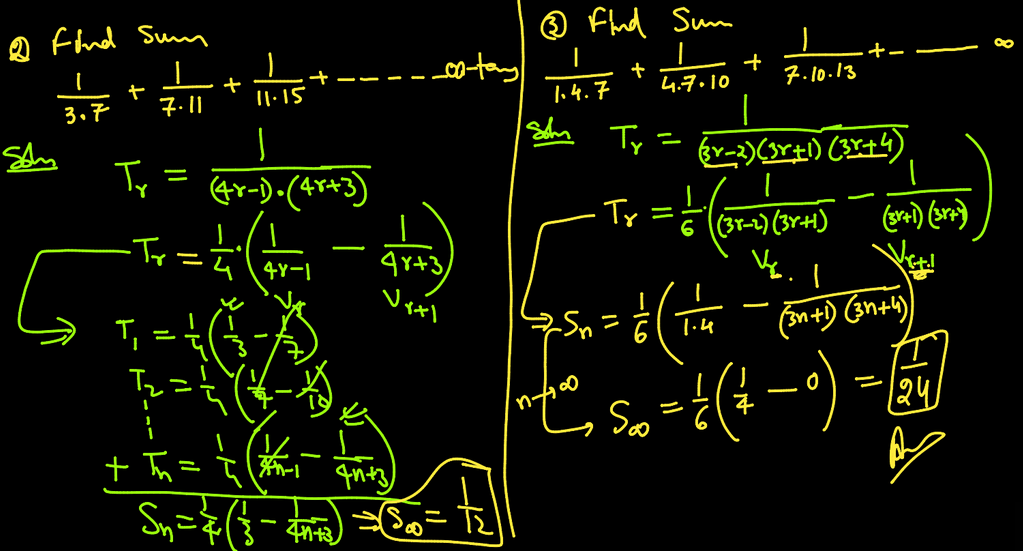 ② Find Sum
1/3.7 + 1/7.11 + 1/11.15 + ------ ∞-term
Soln
Tr = 1/(4r-1).(4r+3)
Tr = 1/4.(1/4r-1 - 1/4r+3)
Vr Vr+1
T1 = 1/4(1/3 - 1/7)
T2 = 1/4(1/7 - 1/11)
+ Tn = 1/4(1/4n-1 - 1/4n+3)
Sn = 1/4(1/3 - 1/4n+3) ⇒ S∞ = 1/12
③ Find Sum
1/1.4.7 + 1/4.7.10 + 1/7.10.13 + - —— ∞
Soln
Tr = 1/(3r-2)(3r+1)(3r+4)
Tr = 1/6.(1/(3r-2)(3r+1) - 1/(3r+1)(3r+4))
Vr Vr+1
Sn = 1/6(1/1.4 - 1/(3n+1)(3n+4))
n→∞
S∞ = 1/6(1/4 - 0) = 1/24
Ans